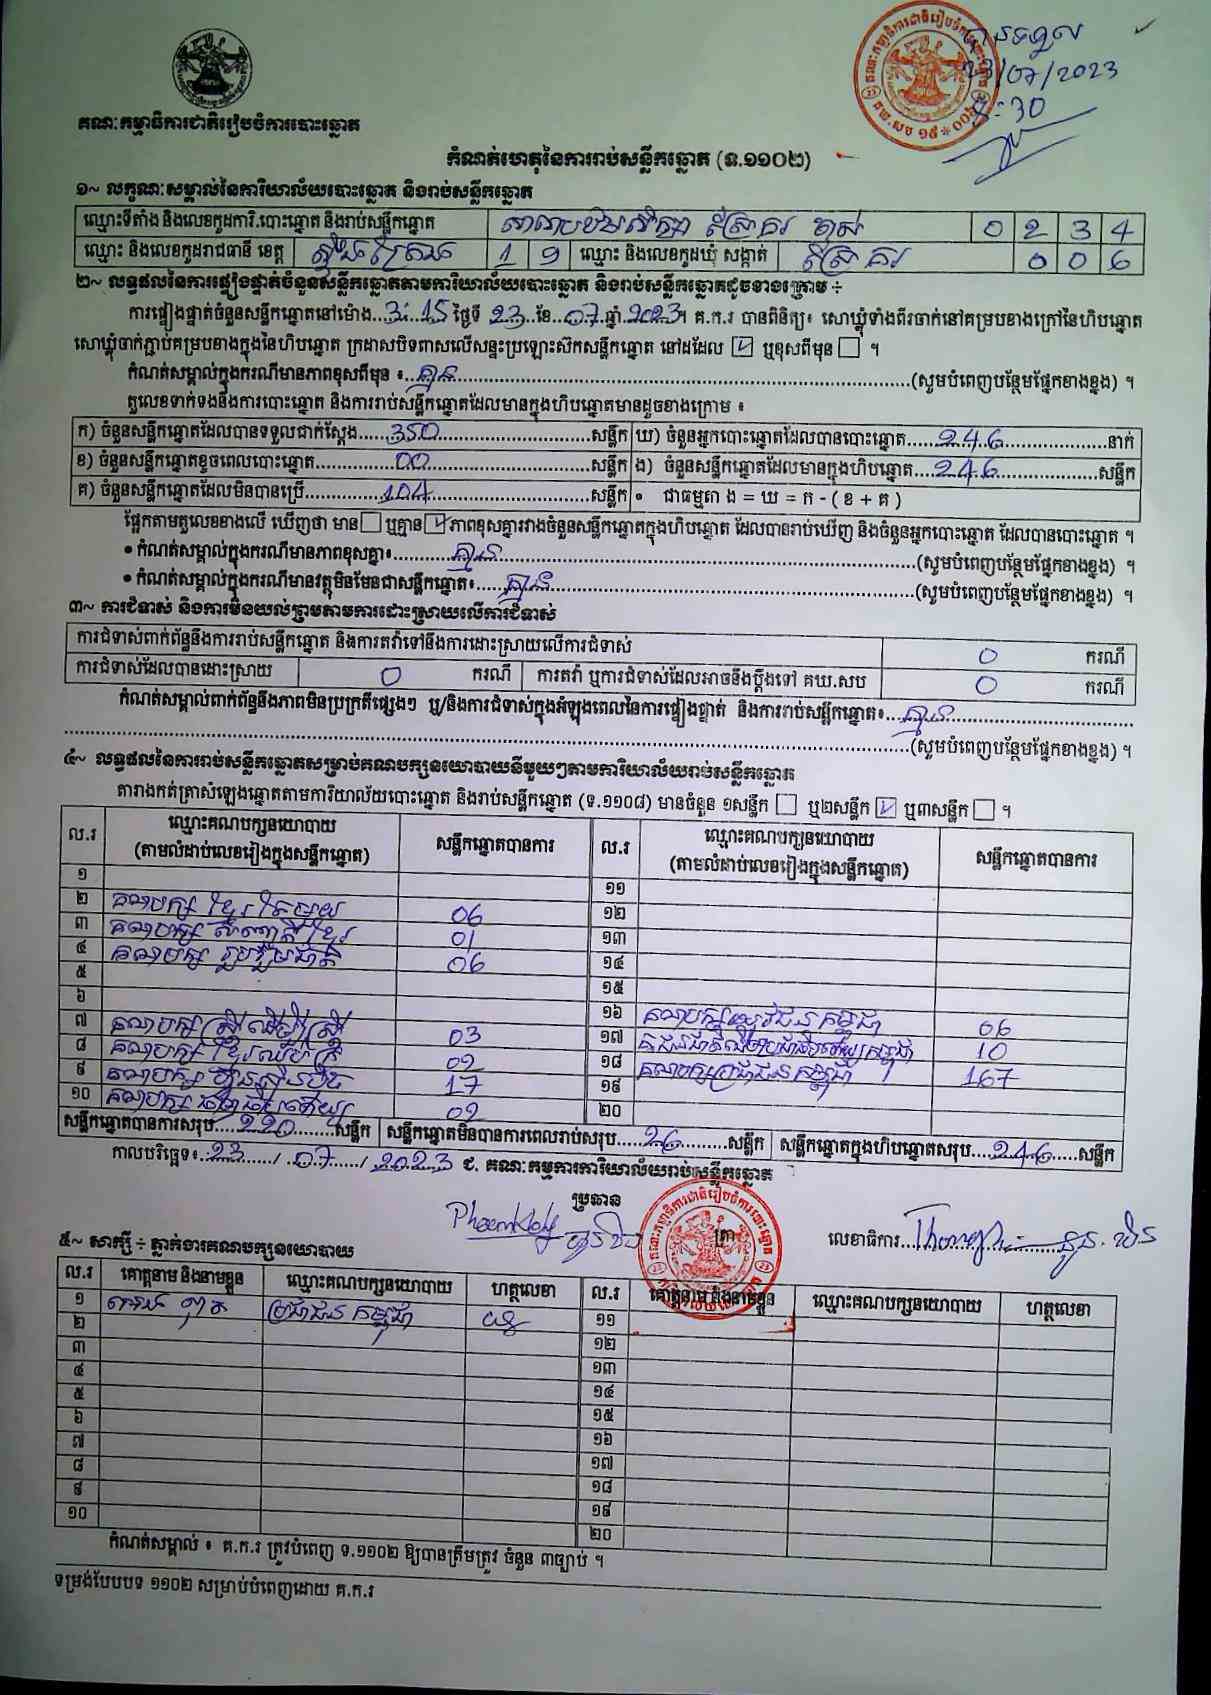 បានទទួល
23/07/2023
គណៈកម្មាធិការជាតិរៀបចំការបោះឆ្នោត
កំណត់ហេតុនៃការរាប់សន្លឹកឆ្នោត (ទ.១១០២)
១~ លក្ខណៈសម្គាល់នៃការិយាល័យបោះឆ្នោត និងរាប់សន្លឹកឆ្នោត
ឈ្មោះទីតាំង និងលេខកូដការិ.បោះឆ្នោត និងរាប់សន្លឹកឆ្នោត 0 2 3 4
ឈ្មោះ និងលេខកូដរាជធានី ខេត្ត ស្ទឹងត្រែង 1 9 ឈ្មោះ និងលេខកូដឃុំ សង្កាត់ ស្រែគរ 0 0 6
២~ លទ្ធផលនៃការផ្ទៀងផ្ទាត់ចំនួនសន្លឹកឆ្នោតតាមការិយាល័យបោះឆ្នោត និងរាប់សន្លឹកឆ្នោតដូចខាងក្រោម ÷
ការផ្ទៀងផ្ទាត់ចំនួនសន្លឹកឆ្នោតនៅម៉ោង...3:15 ថ្ងៃទី 23 ខែ 07 ឆ្នាំ 2023។ គ.ក.រ បានពិនិត្យ៖ សោឃ្លុំទាំងពីរចាក់នៅគម្របខាងក្រៅនៃហិបឆ្នោត
សោឃ្លុំចាក់ភ្ជាប់គម្របខាងក្នុងនៃហិបឆ្នោត ក្រដាសបិទពាសលើសន្ទះប្រឡោះស៊កសន្លឹកឆ្នោត នៅដដែល ☑ ឬខុសពីមុន ☐ ។
កំណត់សម្គាល់ក្នុងករណីមានភាពខុសពីមុន ៖ គ្មាន (សូមបំពេញបន្ថែមផ្នែកខាងខ្នង) ។
តួលេខទាក់ទងនឹងការបោះឆ្នោត និងការរាប់សន្លឹកឆ្នោតដែលមានក្នុងហិបឆ្នោតមានដូចខាងក្រោម ៖
ក) ចំនួនសន្លឹកឆ្នោតដែលបានទទួលជាក់ស្តែង 350 សន្លឹក ឃ) ចំនួនអ្នកបោះឆ្នោតដែលបានបោះឆ្នោត 246 នាក់
ខ) ចំនួនសន្លឹកឆ្នោតខូចពេលបោះឆ្នោត 00 សន្លឹក ង) ចំនួនសន្លឹកឆ្នោតដែលមានក្នុងហិបឆ្នោត 246 សន្លឹក
គ) ចំនួនសន្លឹកឆ្នោតដែលមិនបានប្រើ 104 សន្លឹក • ជាធម្មតា ង = ឃ = ក - ( ខ + គ )
ផ្អែកតាមតួលេខខាងលើ ឃើញថា មាន ☐ ឬគ្មាន ☑ ភាពខុសគ្នារវាងចំនួនសន្លឹកឆ្នោតក្នុងហិបឆ្នោត ដែលបានរាប់ឃើញ និងចំនួនអ្នកបោះឆ្នោត ដែលបានបោះឆ្នោត ។
• កំណត់សម្គាល់ក្នុងករណីមានភាពខុសគ្នា៖ គ្មាន (សូមបំពេញបន្ថែមផ្នែកខាងខ្នង) ។
• កំណត់សម្គាល់ក្នុងករណីមានវត្ថុមិនមែនជាសន្លឹកឆ្នោត៖ គ្មាន (សូមបំពេញបន្ថែមផ្នែកខាងខ្នង) ។
៣~ ការជំទាស់ និងការមិនយល់ព្រមតាមការដោះស្រាយលើការជំទាស់
ការជំទាស់ពាក់ព័ន្ធនឹងការរាប់សន្លឹកឆ្នោត និងការតវ៉ាទៅនឹងការដោះស្រាយលើការជំទាស់ 0 ករណី
ការជំទាស់ដែលបានដោះស្រាយ 0 ករណី ការតវ៉ា ឬការជំទាស់ដែលអាចនឹងប្តឹងទៅ គឃ.សប 0 ករណី
កំណត់សម្គាល់ពាក់ព័ន្ធនឹងភាពមិនប្រក្រតីផ្សេងៗ ឬ/និងការជំទាស់ក្នុងអំឡុងពេលនៃការផ្ទៀងផ្ទាត់ និងការរាប់សន្លឹកឆ្នោត៖ គ្មាន
(សូមបំពេញបន្ថែមផ្នែកខាងខ្នង) ។
៤~ លទ្ធផលនៃការរាប់សន្លឹកឆ្នោតសម្រាប់គណបក្សនយោបាយនីមួយៗតាមការិយាល័យរាប់សន្លឹកឆ្នោត
តារាងកត់ត្រាសំឡេងឆ្នោតតាមការិយាល័យបោះឆ្នោត និងរាប់សន្លឹកឆ្នោត (ទ.១១០៨) មានចំនួន ១សន្លឹក ☐ ឬ២សន្លឹក ☑ ឬ៣សន្លឹក ☐ ។
ល.រ ឈ្មោះគណបក្សនយោបាយ (តាមលំដាប់លេខរៀងក្នុងសន្លឹកឆ្នោត) សន្លឹកឆ្នោតបានការ ល.រ ឈ្មោះគណបក្សនយោបាយ (តាមលំដាប់លេខរៀងក្នុងសន្លឹកឆ្នោត) សន្លឹកឆ្នោតបានការ
១ ១១
២ គណបក្ស ខ្មែរតែមួយ 06 ១២
៣ គណបក្ស សញ្ជាតិខ្មែរ 01 ១៣
៤ គណបក្ស រួបរួមជាតិ 06 ១៤
៥ ១៥
៦ ១៦ គណបក្សយុវជនកម្ពុជា 06
៧ គណបក្ស ស្ត្រីដើម្បីស្ត្រី 03 ១៧ 10
៨ គណបក្ស ខ្មែរឈប់ក្រ 02 ១៨ គណបក្សប្រជាជនកម្ពុជា 167
៩ គណបក្ស ហ៊្វុនស៊ិនប៉ិច 17 ១៩
១០ គណបក្ស 02 ២០
សន្លឹកឆ្នោតបានការសរុប 220 សន្លឹក សន្លឹកឆ្នោតមិនបានការពេលរាប់សរុប 26 សន្លឹក សន្លឹកឆ្នោតក្នុងហិបឆ្នោតសរុប 246 សន្លឹក
កាលបរិច្ឆេទ៖ 23 / 07 / 2023 ជ. គណៈកម្មការការិយាល័យរាប់សន្លឹកឆ្នោត
ប្រធាន
ត្រា លេខាធិការ
៥~ សាក្សី ÷ ភ្នាក់ងារគណបក្សនយោបាយ
ល.រ គោត្តនាម និងនាមខ្លួន ឈ្មោះគណបក្សនយោបាយ ហត្ថលេខា ល.រ គោត្តនាម និងនាមខ្លួន ឈ្មោះគណបក្សនយោបាយ ហត្ថលេខា
១ ប្រជាជនកម្ពុជា ១១
២ ១២
៣ ១៣
៤ ១៤
៥ ១៥
៦ ១៦
៧ ១៧
៨ ១៨
៩ ១៩
១០ ២០
កំណត់សម្គាល់ ៖ គ.ក.រ ត្រូវបំពេញ ទ.១១០២ ឱ្យបានត្រឹមត្រូវ ចំនួន ៣ច្បាប់ ។
ទម្រង់បែបបទ ១១០២ សម្រាប់បំពេញដោយ គ.ក.រ